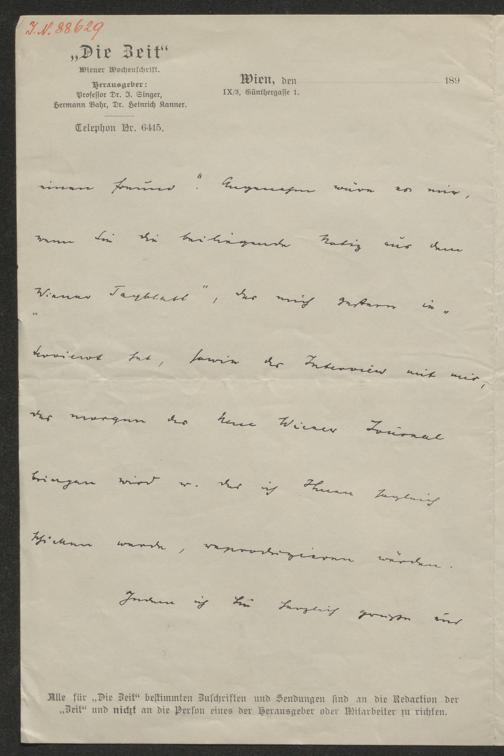 J.N. 88629
„Die Zeit“
Wiener Wochenschrift.
Herausgeber:
Professor Dr. J. Singer,
Hermann Bahr, Dr. Heinrich Kanner.
Telephon Nr. 6415.
Wien, den 189
IX/3, Günthergasse 1.
einen Freund“. Angenehm wäre es mir,
wenn Sie die beiliegende Notiz aus dem
„Wiener Tagblatt“, das mich gestern in-
terviewt hat, sowie das Interview mit mir,
das morgen das Neue Wiener Journal
bringen wird u. das ich Ihnen sogleich
schicken werde, reproduzieren würden.
Indem ich Sie herzlich grüße und
Alle für „Die Zeit“ bestimmten Zuschriften und Sendungen sind an die Redaction der
„Zeit“ und nicht an die Person eines der Herausgeber oder Mitarbeiter zu richten.